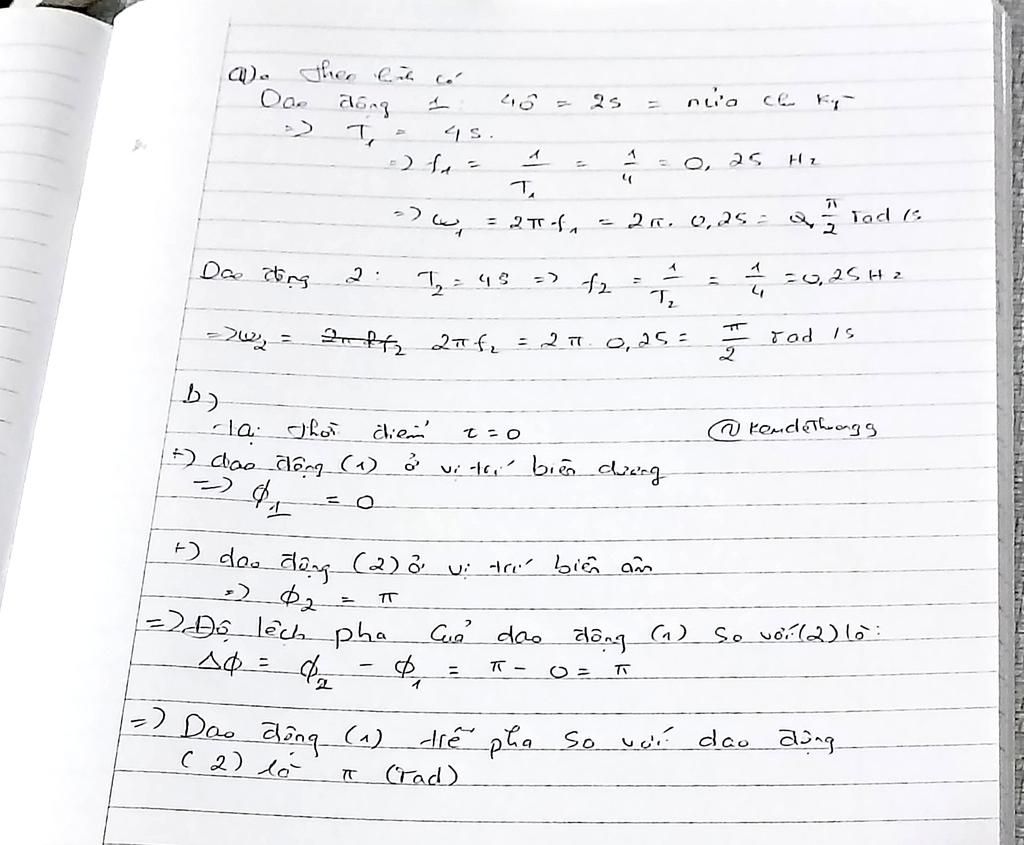 a). Theo hình có
Dao động 1: 4ô = 2s = nửa chu kỳ
=> T₁ = 4s.
=> f₁ = 1/T₁ = 1/4 = 0,25 Hz
=> ω₁ = 2πf₁ = 2π. 0,25 = π/2 rad/s
Dao động 2: T₂ = 4s => f₂ = 1/T₂ = 1/4 = 0,25 Hz
=> ω₂ = 2πf₂ = 2π. 0,25 = π/2 rad/s
b)
Tại thời điểm t = 0
+) dao động (1) ở vị trí biên dương
=> ϕ₁ = 0
+) dao động (2) ở vị trí biên âm
=> ϕ₂ = π
=> Độ lệch pha của dao động (1) so với (2) là:
Δϕ = ϕ₂ - ϕ₁ = π - 0 = π
=> Dao động (1) trễ pha so với dao động
(2) là π (rad)